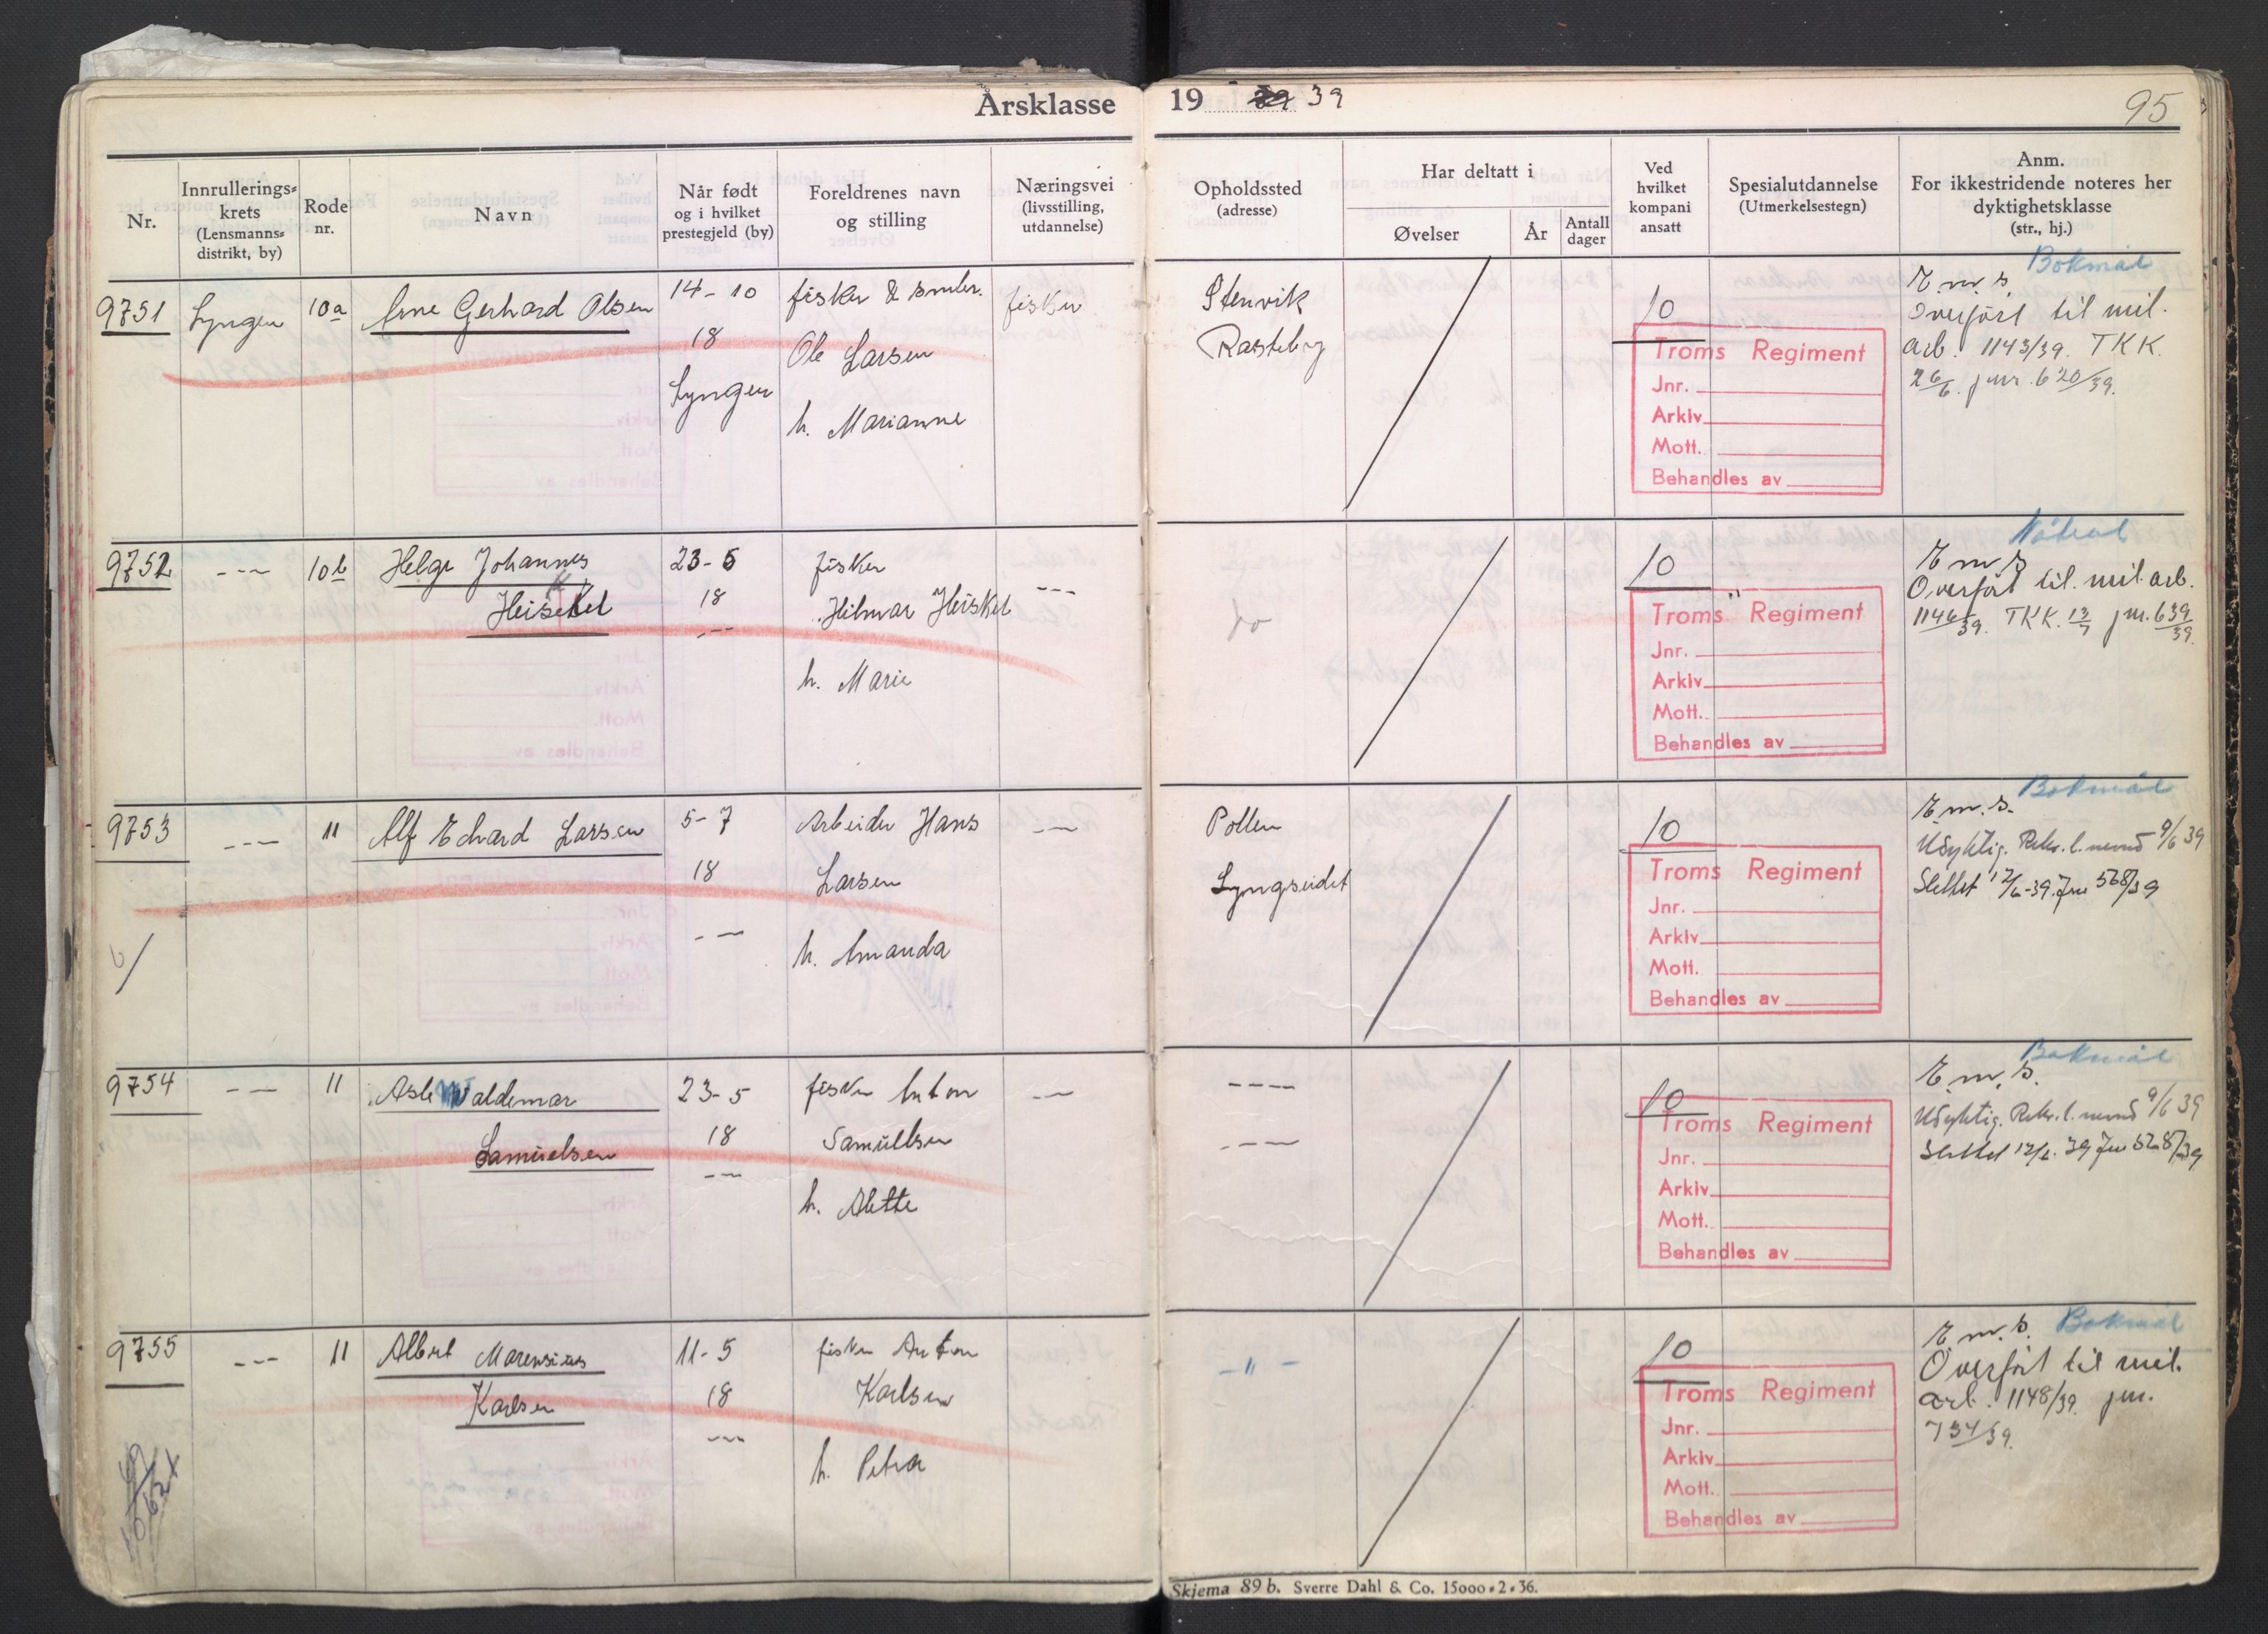 Årsklasse 19 39
95
Nr.
Innrullerings-
krets
(Lensmanns-
distrikt, by)
Rode
nr.
Navn
Når født
og i hvilket
prestegjeld (by)
Foreldrenes navn
og stilling
Næringsvei
(livsstilling,
utdannelse)
Opholdssted
(adresse)
Har deltatt i
Øvelser
År
Antall
dager
Ved
hvilket
kompani
ansatt
Spesialutdannelse
(Utmerkelsestegn)
Anm.
For ikkestridende noteres her
dyktighetsklasse
(str., hj.)
9751
Lyngen
10a
Arne Gerhard Olsen
14-10
18
Lyngen
fisker &
Ole Larsen
h. Marianne
fisker
Stenvik
Rasteby
10
Troms Regiment
Jnr.
Arkiv
Mott.
Behandles av
Bokmål
E.m.s.
Overført til mil.
arb. 1143/39. TKK.
26/6. jnr. 620/39.
9752
---
10b
Helge Johannes
Heiskel
23-5
18
---
fisker
Hilmar Heiskel
h. Marie
---
10
Troms Regiment
Jnr.
Arkiv
Mott.
Behandles av
E m s
Overført til. mil. arb.
1146/39. TKK. 13/7 jnr. 639/39.
9753
---
11
Alf Edvard Larsen
5-7
18
---
Arbeider Hans
Larsen
h. Amanda
---
Pollen
Lyngseidet
10
Troms Regiment
Jnr.
Arkiv
Mott.
Behandles av
Bokmål
E.m.s.
Udyktig. Rekr. l. nevnd 9/6 39
Slettet 12/6-39. Jnr 568/39
9754
---
11
Asle Waldemar
Samuelsen
23-5
18
---
fisker Anton
Samuelsen
h. Alette
---
----
----
10
Troms Regiment
Jnr.
Arkiv
Mott.
Behandles av
Bokmål
E.m.s.
Udyktig. Rekr. l. nevnd 9/6 39
Slettet 12/6. 39 Jnr 568/39
9755
---
11
Albert Marensius
Karlsen
11-5
18
---
fisker Anton
Karlsen
h. Petra
-"-
10
Troms Regiment
Jnr.
Arkiv
Mott.
Behandles av
E.m.s. Bokmål
Overført til mil.
arb. 1148/39. jnr.
734/39.
Skjema 89 b. Sverre Dahl & Co. 15000-2-36.